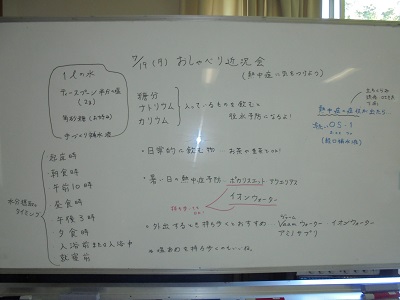 7/19(月) おしゃべり近況会
(熱中症に気をつけよう)
1ℓの水
ティースプーン半分の塩
(2g)
角砂糖(お好み)
手づくり補水液
糖分
ナトリウム
カリウム
入っているものを飲むと
脱水予防になるよ!
熱中症の症状が出たら
OS-1
(経口補水液)
・日常的に飲む物… お茶や麦茶でOK!
・暑い日の熱中症予防… ポカリスエット アクエリアス
イオンウォーター
・外出するとき持ち歩くとおすすめ… Vaamウォーター イオンウォーター
アミノサプリ
・塩あめを持ち歩くのもいいね。
水分補給の
タイミング
起床時
朝食時
午前10時
昼食時
午後3時
夕食時
入浴前または入浴中
就寝前